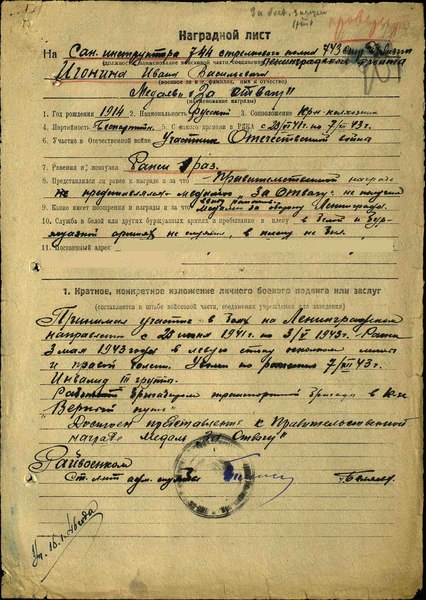 За боев. заслуги
Наградной лист
На Сан. инструктора 744 стрелкового полка
(должность, наименование войсковой части, соединения)
Ленинградского фронта
Игонина Ивана Васильевича
Медаль "За Отвагу"
(наименование награды)
1. Год рождения 1914 2. Национальность Русский 3. Соцположение кр-н колхозник
4. Партийность Беспартийн. 5. С какого времени в РККА с 23/VI 41г. по 7/VII 43г.
6. Участие в Отечественной войне Участник Отечественной войны
7. Ранения и контузия Ранен 1 раз.
8. Представлялся ли ранее к награде и за что Правительственной награде
не представлялся медаль За Отвагу не получал
9. Какие имеет поощрения и награды и за что медаль за оборону Ленинграда.
10. Служба в белой или других буржуазных армиях и пребывание в плену в белой и бур-
жуазной армиях не служил, в плену не был.
11. Постоянный адрес
1. Краткое, конкретное изложение личного боевого подвига или заслуг
(составляется в штабе войсковой части, соединения, учреждения или заведения)
Принимал участие в боях на Ленинградском
направлении с 23 июня 1941г. по 3/V 1943г. Ранен
3 мая 1943 года в левую стопу осколком мины
и правой голени. Уволен по ранению 7/VII 43г.
Инвалид III группа.
Работает бригадиром тракторной бригады в к-зе
"Верный путь"
Достоин представления к Правительственной
награде медаль "За Отвагу"
Райвоенком
Ст. лейт. адм. службы